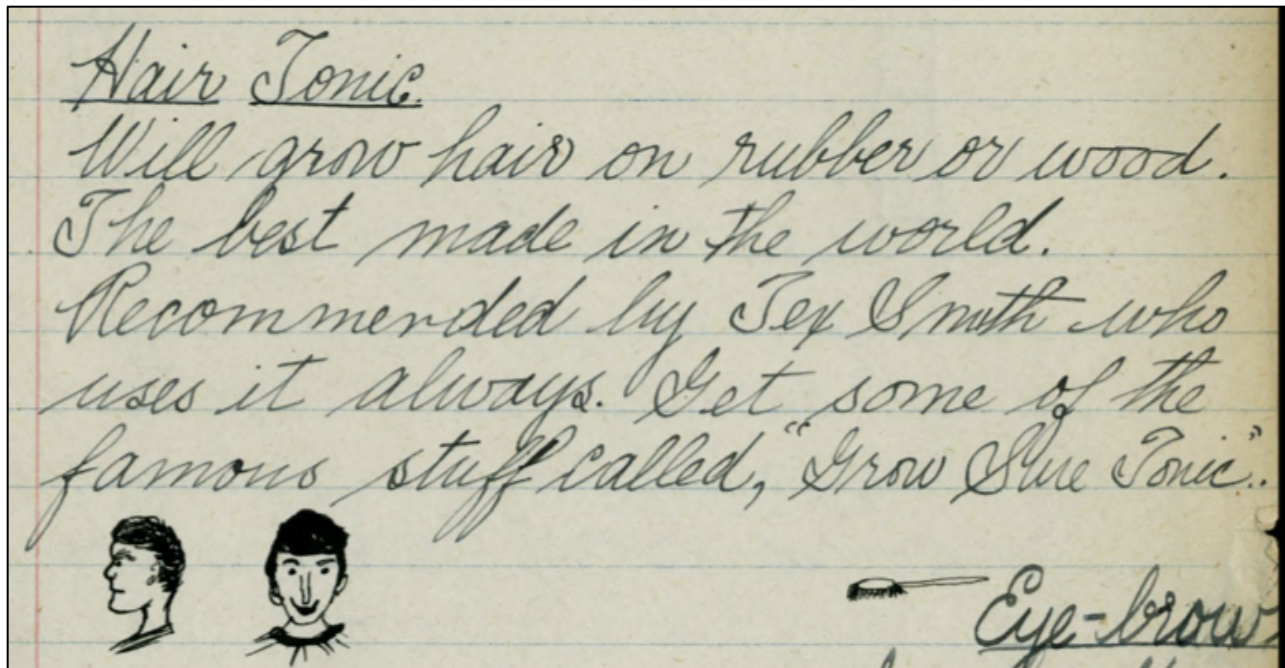 Hair Tonic.
Will grow hair on rubber or wood.
The best made in the world.
Recommended by Tex Smith who
uses it always. Get some of the
famous stuff called, "Grow Sure Tonic".
Eye-brow